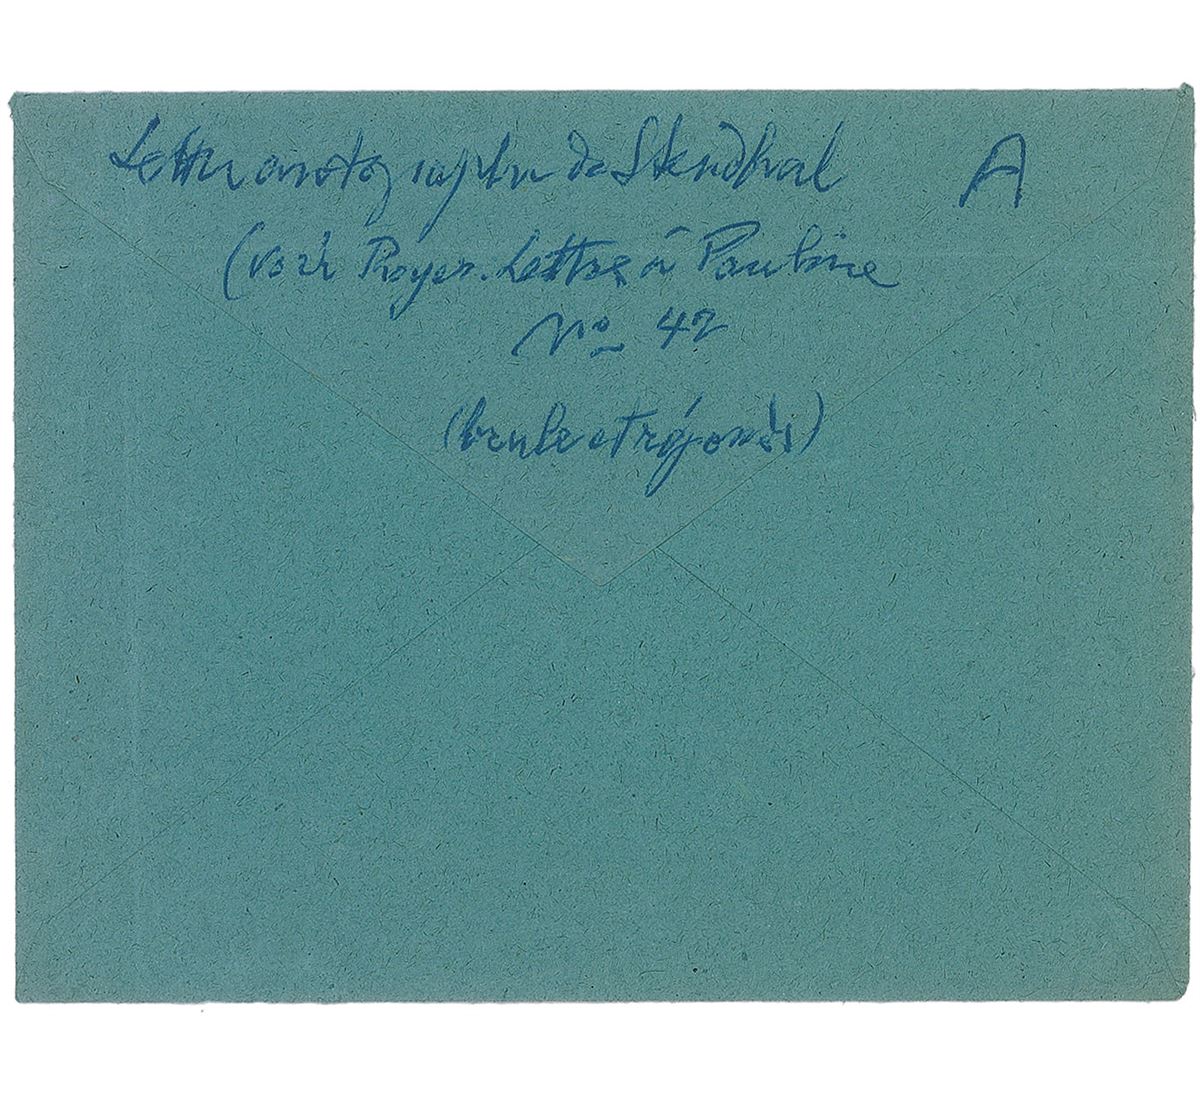 Lettre autographe de Stendhal A
(voir Royer. Lettres à Pauline
No 42
(brule et